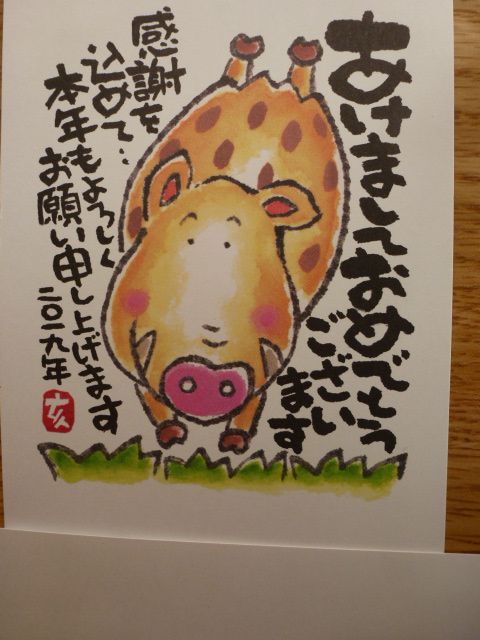 あけましておめでとう
ございます
感謝を
込めて…
本年もよろしく
お願い申し上げます
二〇一九年
亥